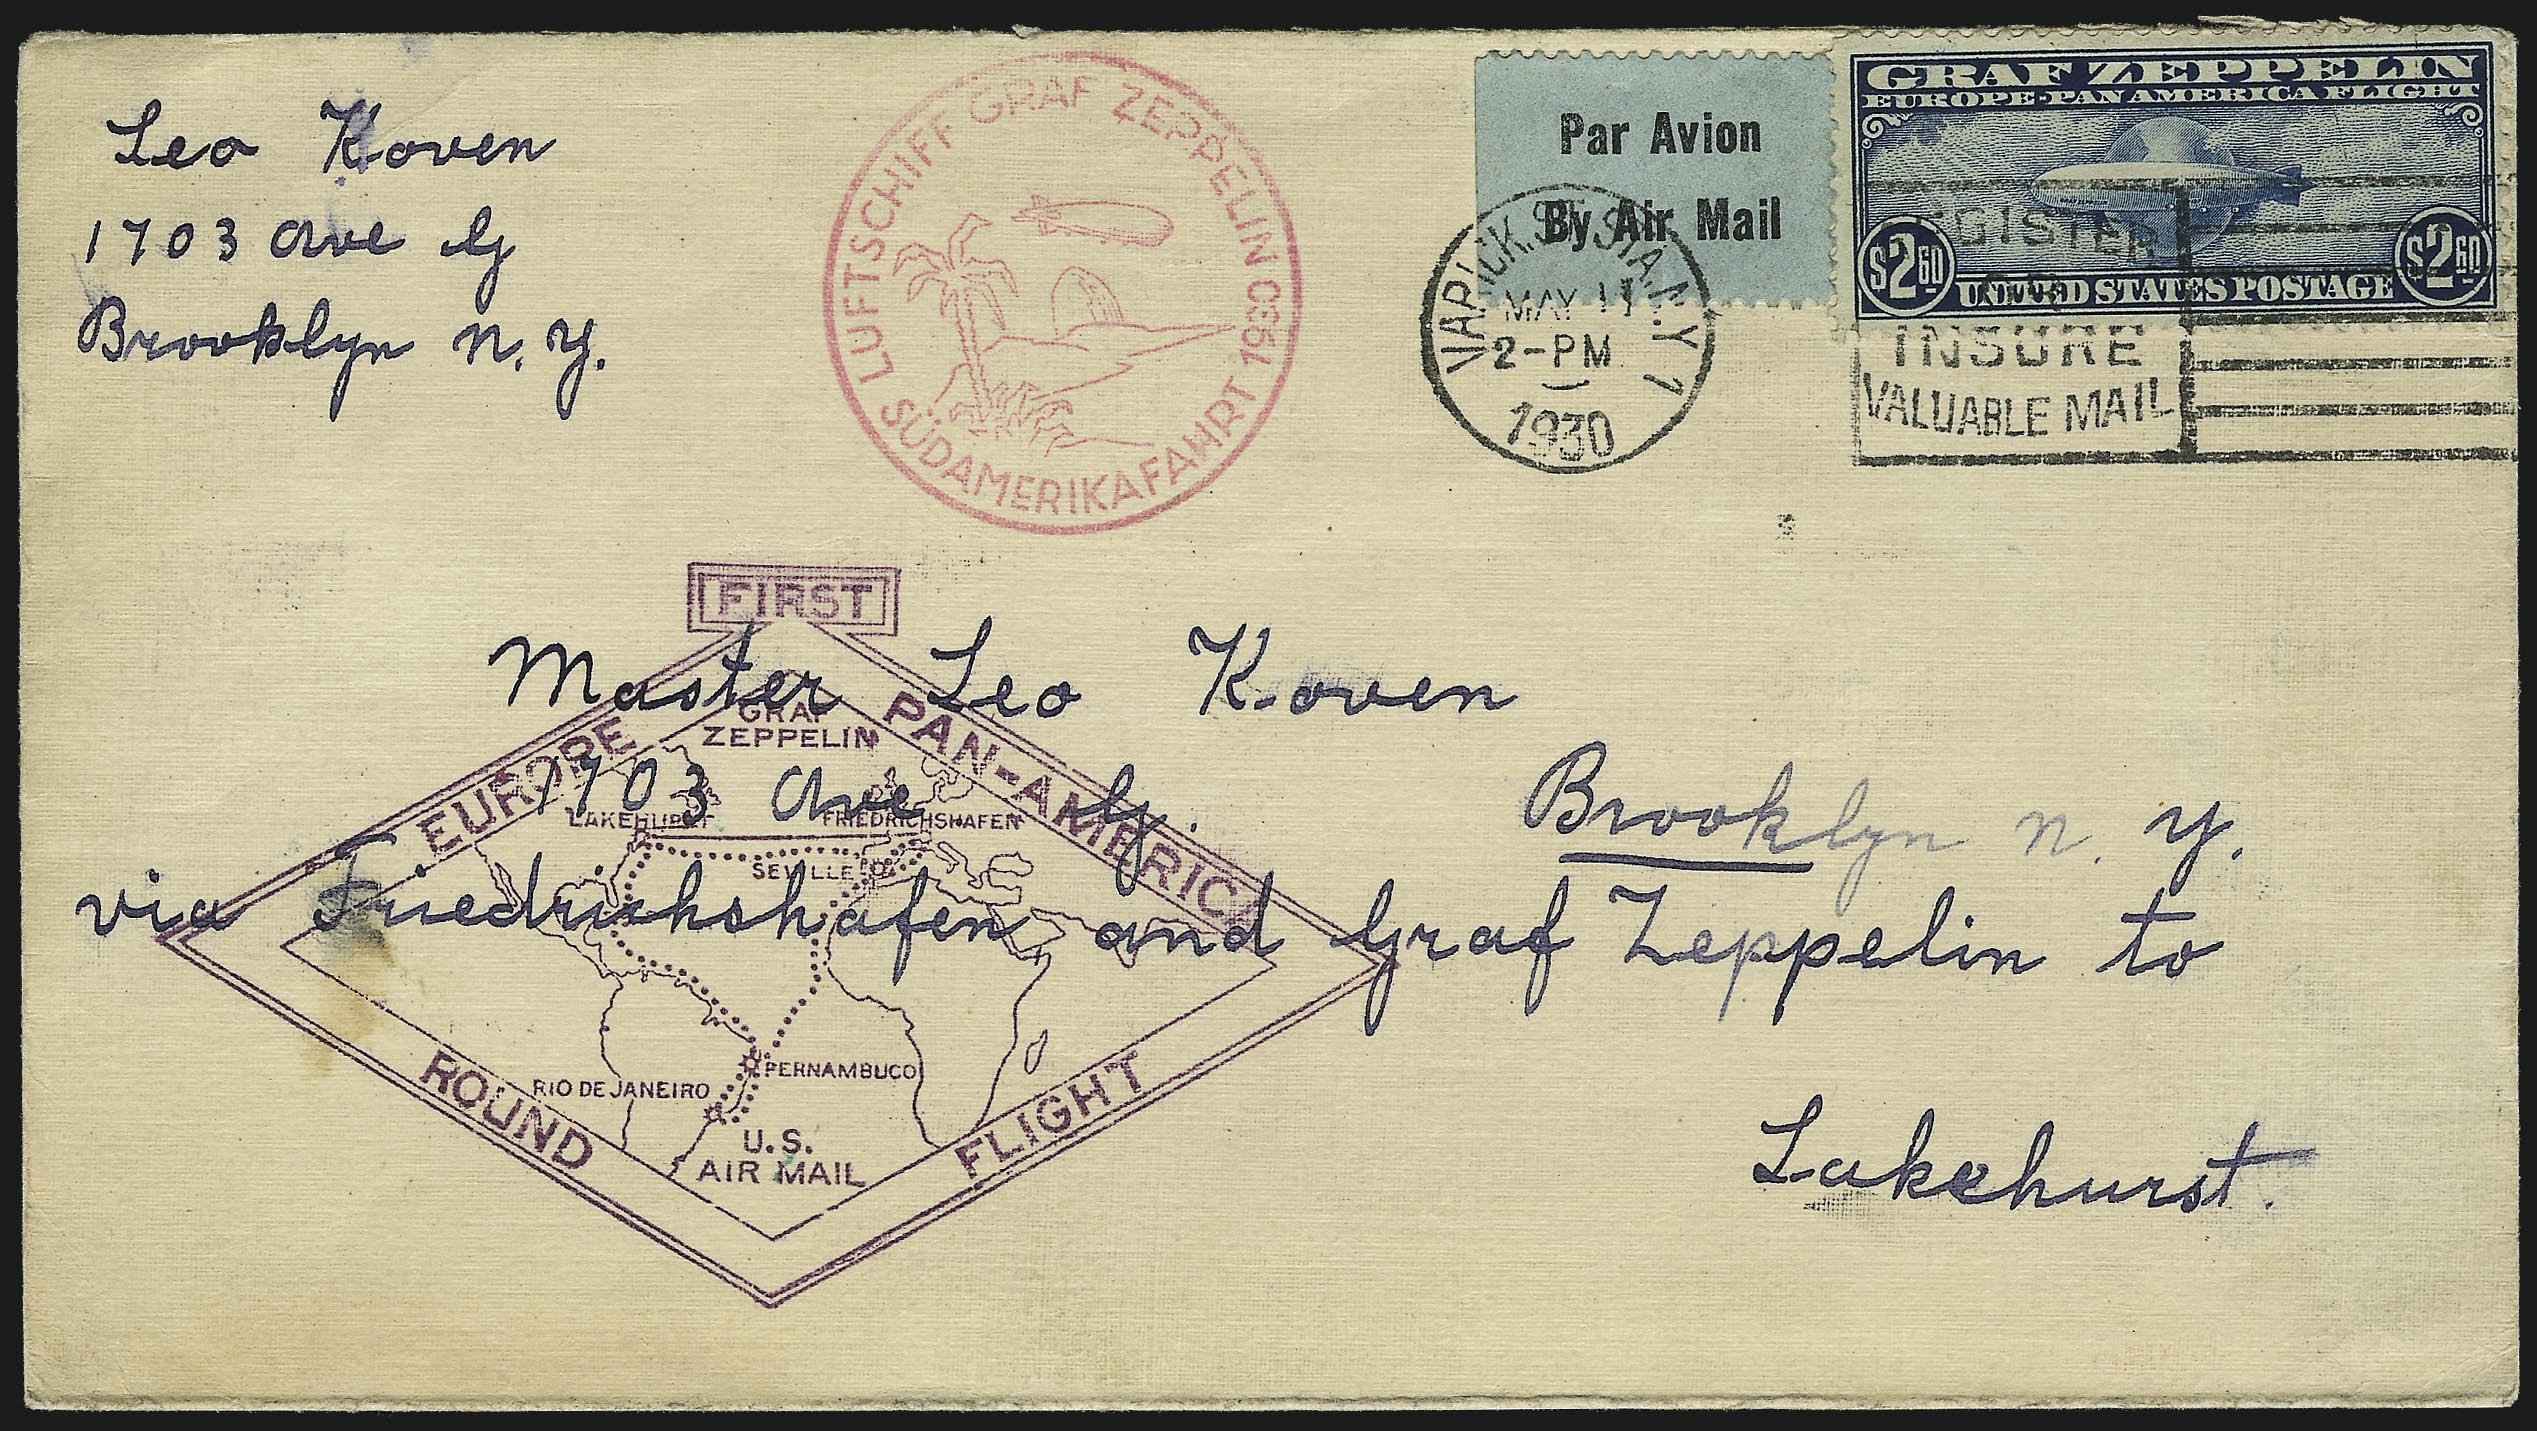 Leo Koven
1703 Ave G
Brooklyn N.Y.
LUFTSCHIFF GRAF ZEPPELIN 1930
SÜDAMERIKAFAHRT 1930
Par Avion
By Air Mail
GRAF ZEPPELIN
EUROPE-PAN AMERICA FLIGHT
$2.60 UNITED STATES POSTAGE $2.60
VARICK ST. STA. N.Y. 1
MAY 11
2-PM
1930
GISTER
OR
INSURE
VALUABLE MAIL
FIRST
EUROPE PAN-AMERICA
ROUND FLIGHT
GRAF
ZEPPELIN
LAKEHURST FRIEDRICHSHAFEN
SEVILLE
PERNAMBUCO
RIO DE JANEIRO
U.S.
AIR MAIL
Master Leo Koven
1703 Ave G.
Brooklyn N.Y.
via Friedrichshafen and Graf Zeppelin to
Lakehurst.